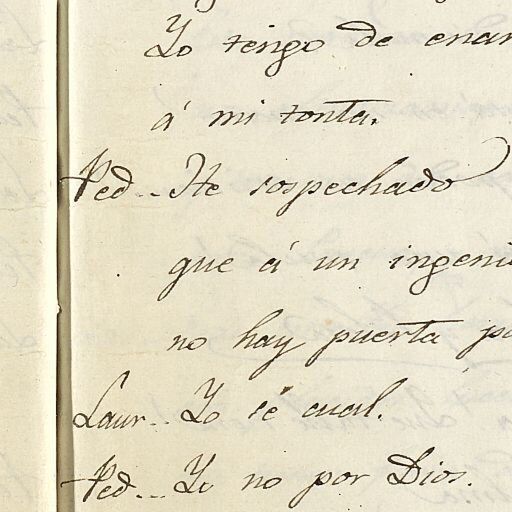 Yo tengo de enam
á mi tonta.
Ped.. He sospechado
que á un ingeni
no hay puerta pa
Laur.. Yo sé cual.
Ped... Yo no por Dios.